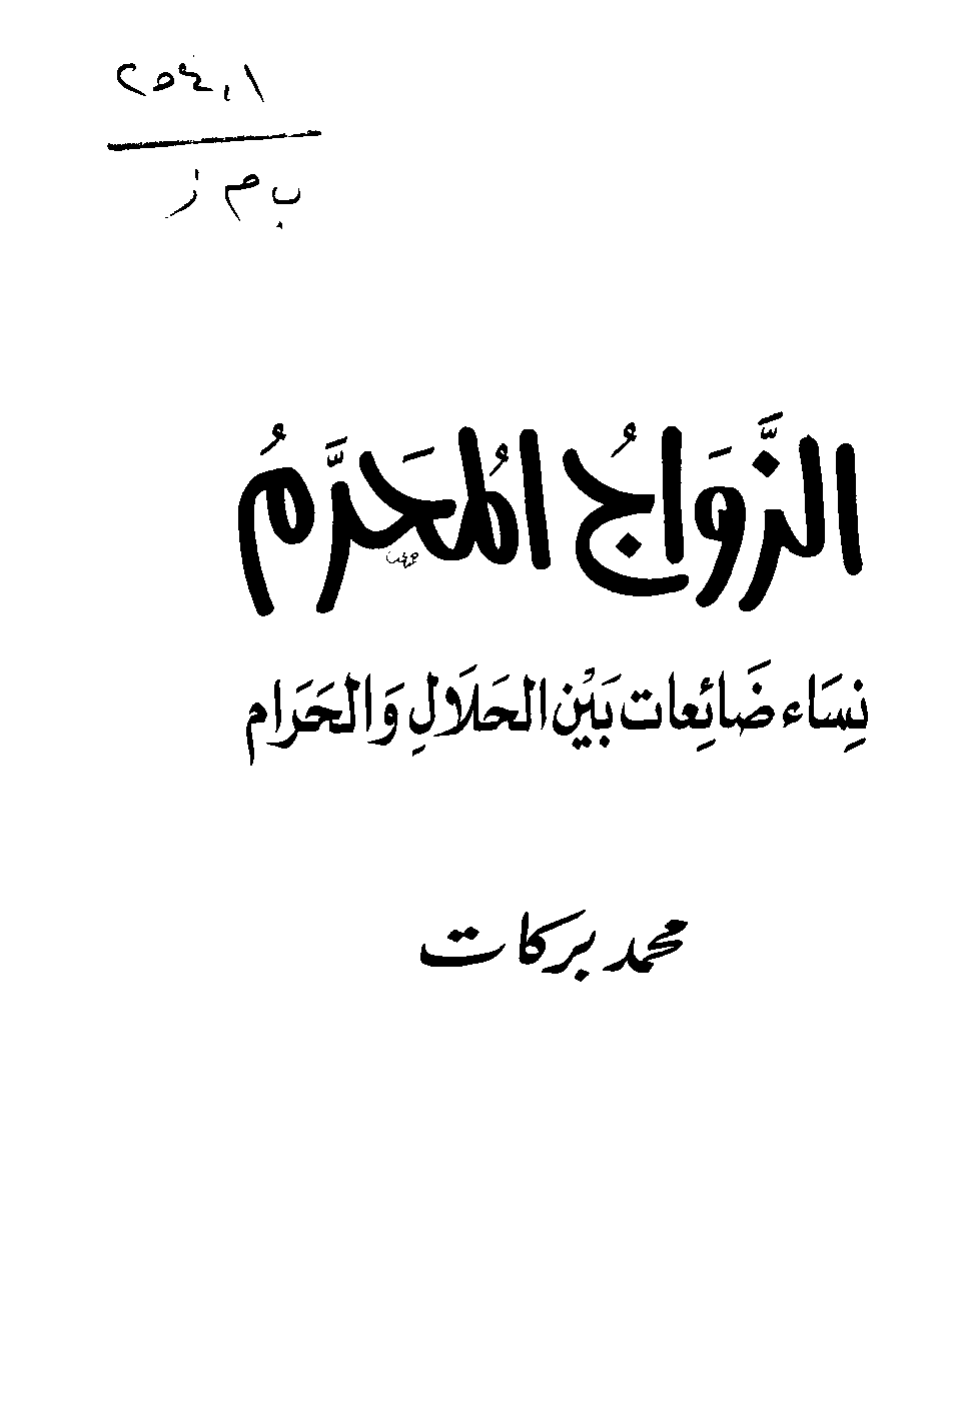 ب م ز
الزَّوَاجُ المُحَرَّمُ
نِسَاء ضَائِعات بَيْن الحَلَالِ وَالحَرَام
محمد بركات